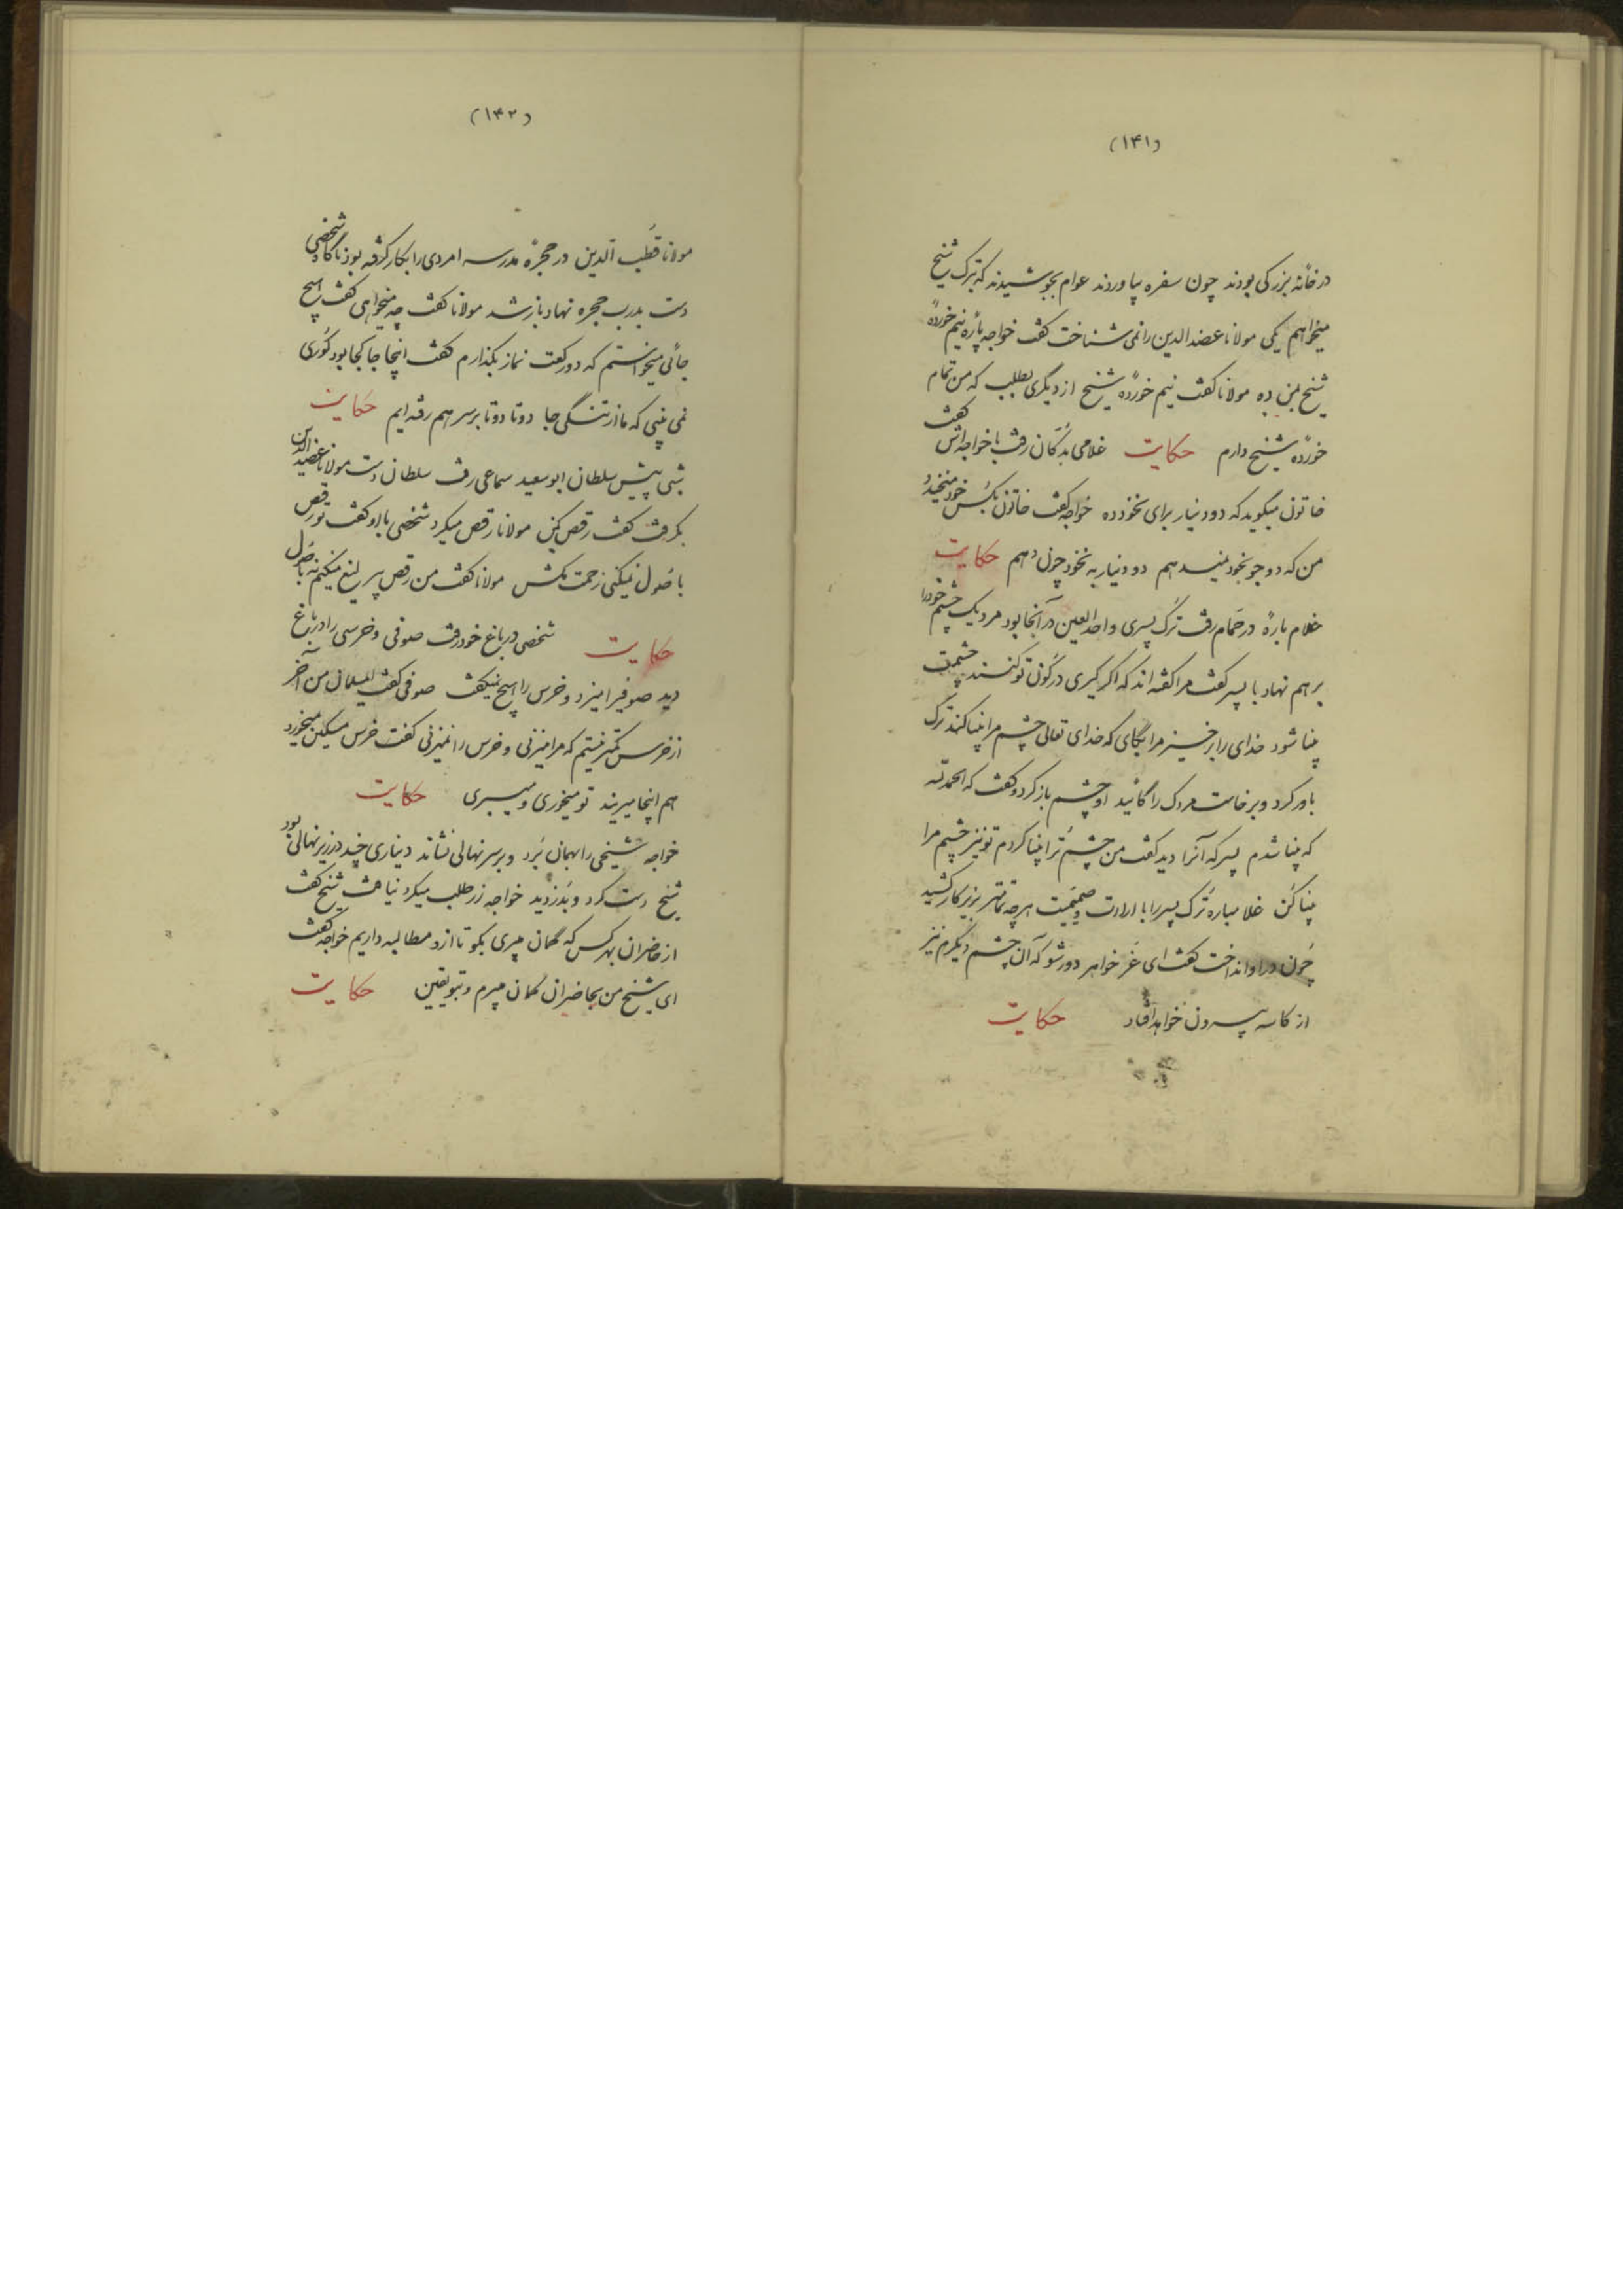 (۱۴۱)
در خانهٔ بزرگی بودند چون سفره بیاوردند عوام بجوشیدند که تبرک شیخ
میخواهیم یکی مولانا عضدالدین را نمی شناخت گفت خواجه پارهٔ نیم خوردهٔ
شیخ بمن ده مولانا گفت نیم خوردهٔ شیخ از دیگری بطلب که من تمام
خوردهٔ شیخ دارم حکایت غلامی بدکان رفت با خواجه‌اش گفت
خاتون میگوید که دو دینار برای نخود ده خواجه گفت خاتون بکس خود میخندد
من که دو جو بخود نمیدهم دو دینار به نخود چون دهم حکایت
غلام بارهٔ در حمام رفت ترک پسری واحدالعین در آنجا بود مرد یک چشم خود را
بر هم نهاد با پسر گفت مرا گفته‌اند که اگر کیری در کون تو کنند چشمت
بینا شود خدای را برخیز مرا بگای که خدای تعالی چشم مرا بینا کند ترک
باور کرد و برخاست مردک را گائید او چشم باز کرد و گفت که الحمدلله
که بینا شدم پسر که آنرا دید گفت من چشم ترا بینا کردم تو نیز چشم مرا
بینا کن غلامباره ترک پسر را با ارادت و صمیمیت هرچه تمامتر بزیر کار کشید
چون در او انداخت گفت ای غر خواهر دور شو که آن چشم دیگرم نیز
از کاسه بیرون خواهد افتاد حکایت
(۱۴۲)
مولانا قطب الدین در حجرهٔ مدرسه امردی را بکار گرفته بود ناگاه شخصی
دست بدرب حجره نهاد باز شد مولانا گفت چه میخواهی گفت هیچ
جائی میخواستم که دو رکعت نماز بگذارم گفت اینجا جا کجا بود کوری
نمی بینی که ما از تنگی جا دوتا دوتا بر سر هم رفته ایم حکایت
شبی پیش سلطان ابوسعید سماعی رفت سلطان دست مولانا عضدالدین
بگرفت گفت رقص کن مولانا رقص میکرد شخصی با او گفت تو رقص
باصول نمیکنی زحمت مکش مولانا گفت من رقص بیرلیغ میکنم نه باصول
حکایت شخصی در باغ خود رفت صوفی و خرسی را در باغ
دید صوفیرا میزد و خرس را هیچ نمیگفت صوفی گفت ایمسلمان من آخر
از خرس کمتر نیستم که مرا میزنی و خرس را نمیزنی گفت خرس مسکین میخورد
هم اینجا میریند تو میخوری و میبری حکایت
خواجه شیخی را بمهمان برد و بر سر نهالی نشاند دیناری چند در زیر نهالی بود
شیخ دست کرد و بدزدید خواجه زر طلب میکرد نیافت شیخ گفت
از حاضران بهر کس که گمان میبری بگو تا از او مطالبه داریم خواجه گفت
ای شیخ من بحاضران گمان میبرم و بتو یقین حکایت